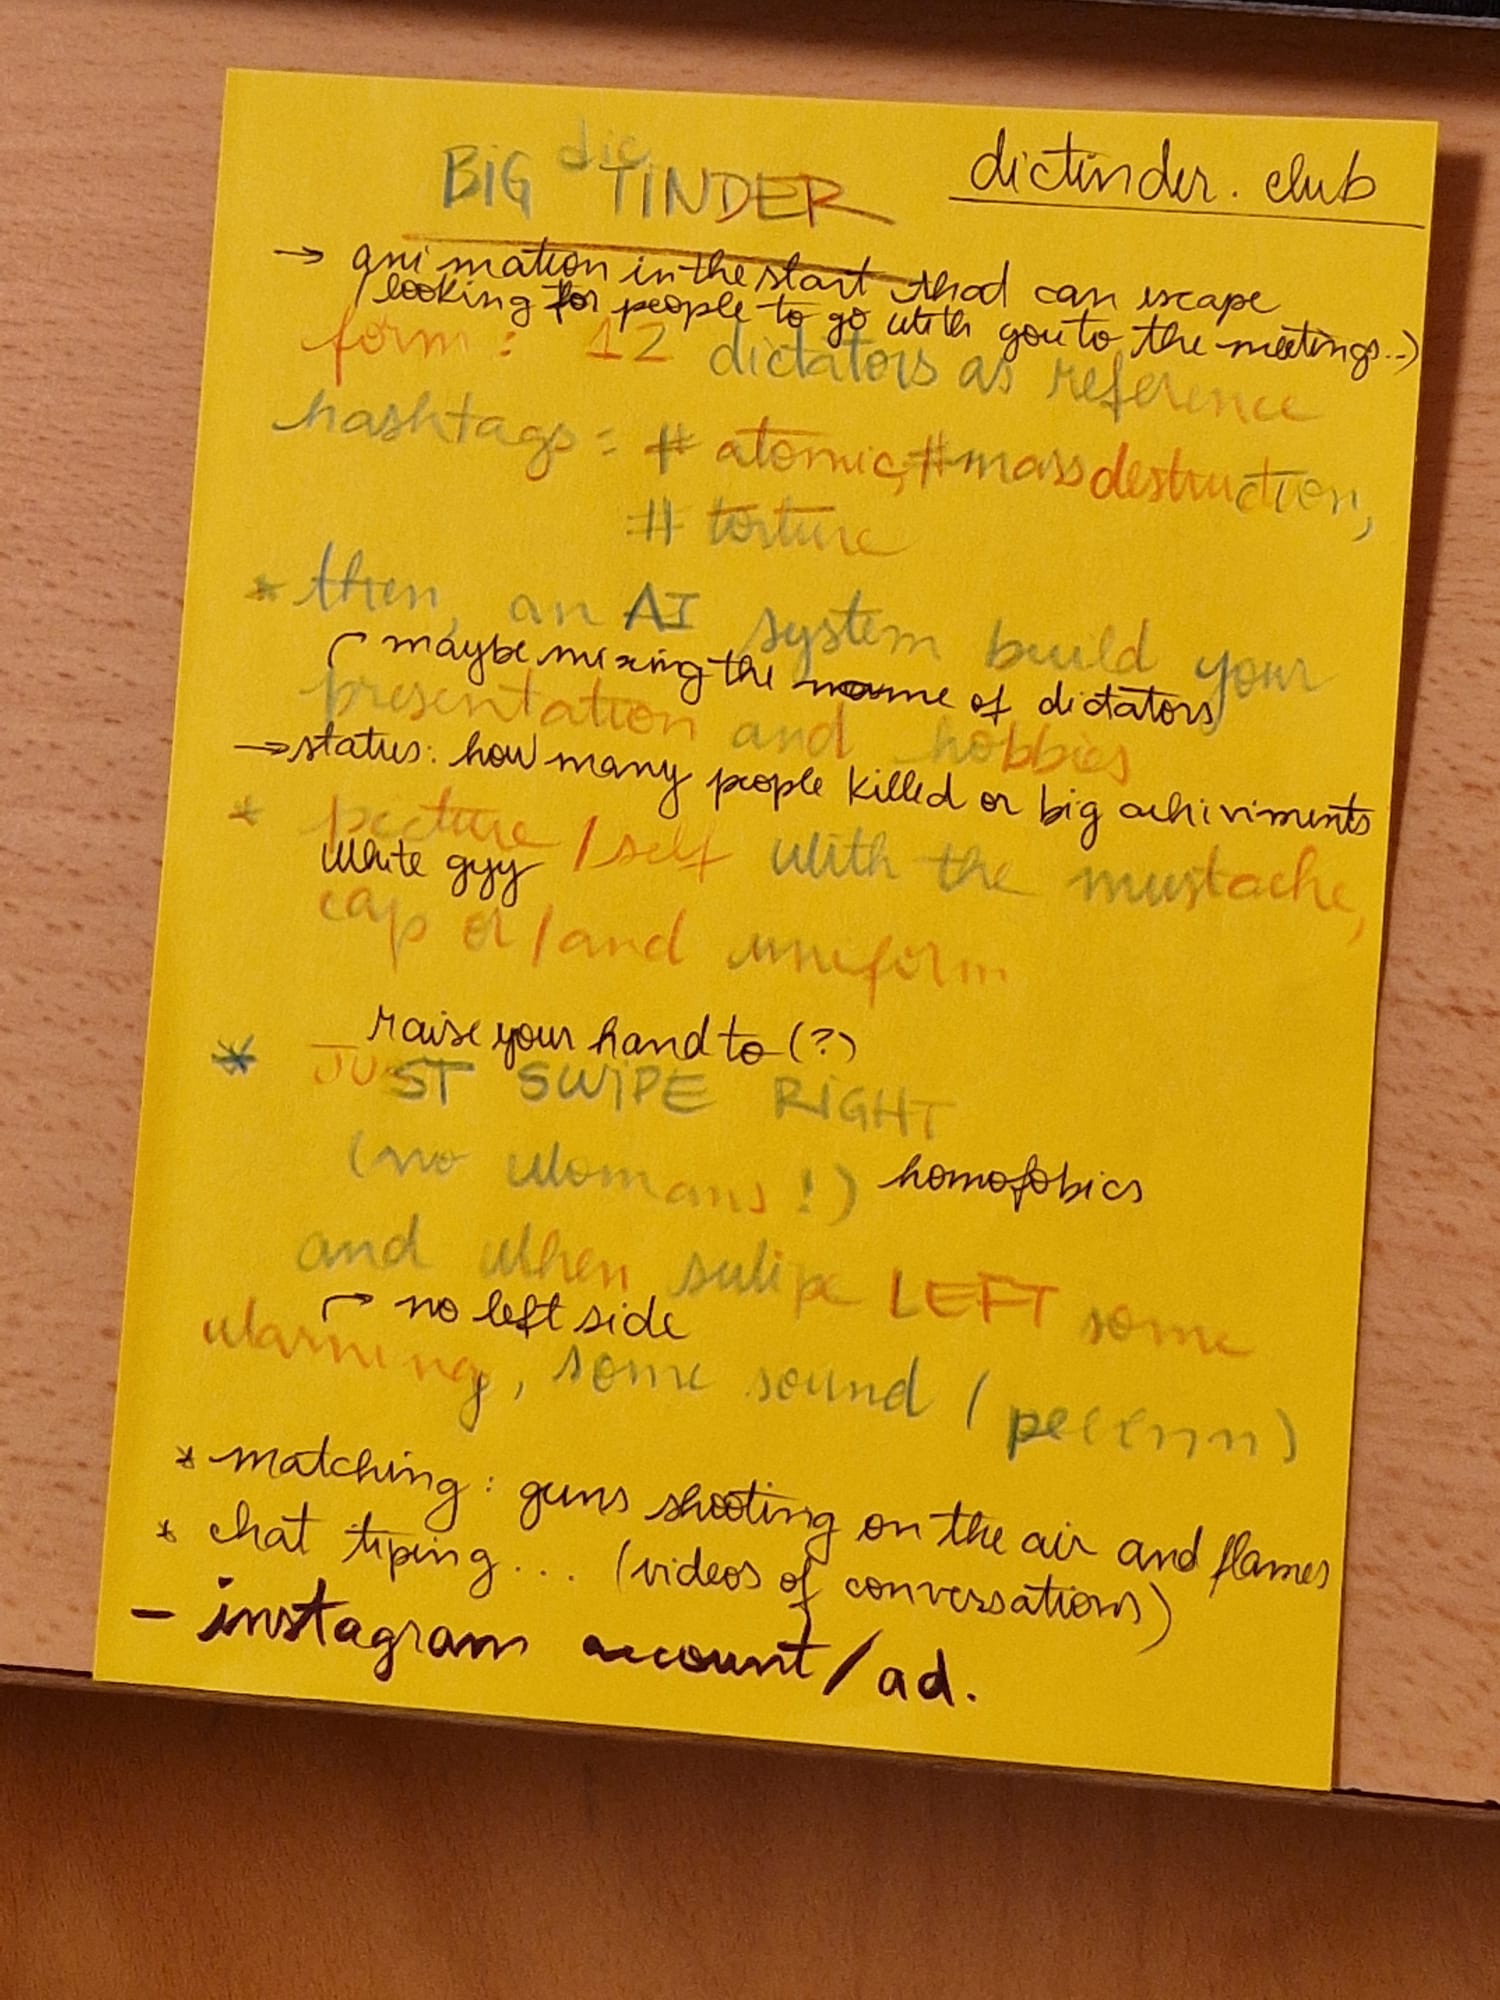 BiG dic TINDER
dictinder.club
→ animation in the start that can escape
(looking for people to go with you to the meetings...)
form: 12 dictators as reference
hashtags: # atomic, #mass destruction,
# torture
* then, an AI system build your
maybe mixing the name of dictators
presentation and hobbies
→ status: how many people killed or big achiviments
* picture / self with the mustache,
White gyy
cap or/and uniform
raise your hand to (?)
* JUST SWIPE RIGHT
(no womans!) homofobics
and when swipe LEFT some
→ no left side
warning, some sound (
* matching: guns shooting on the air and flames
* chat tiping... (videos of conversations)
- instagram account/ad.